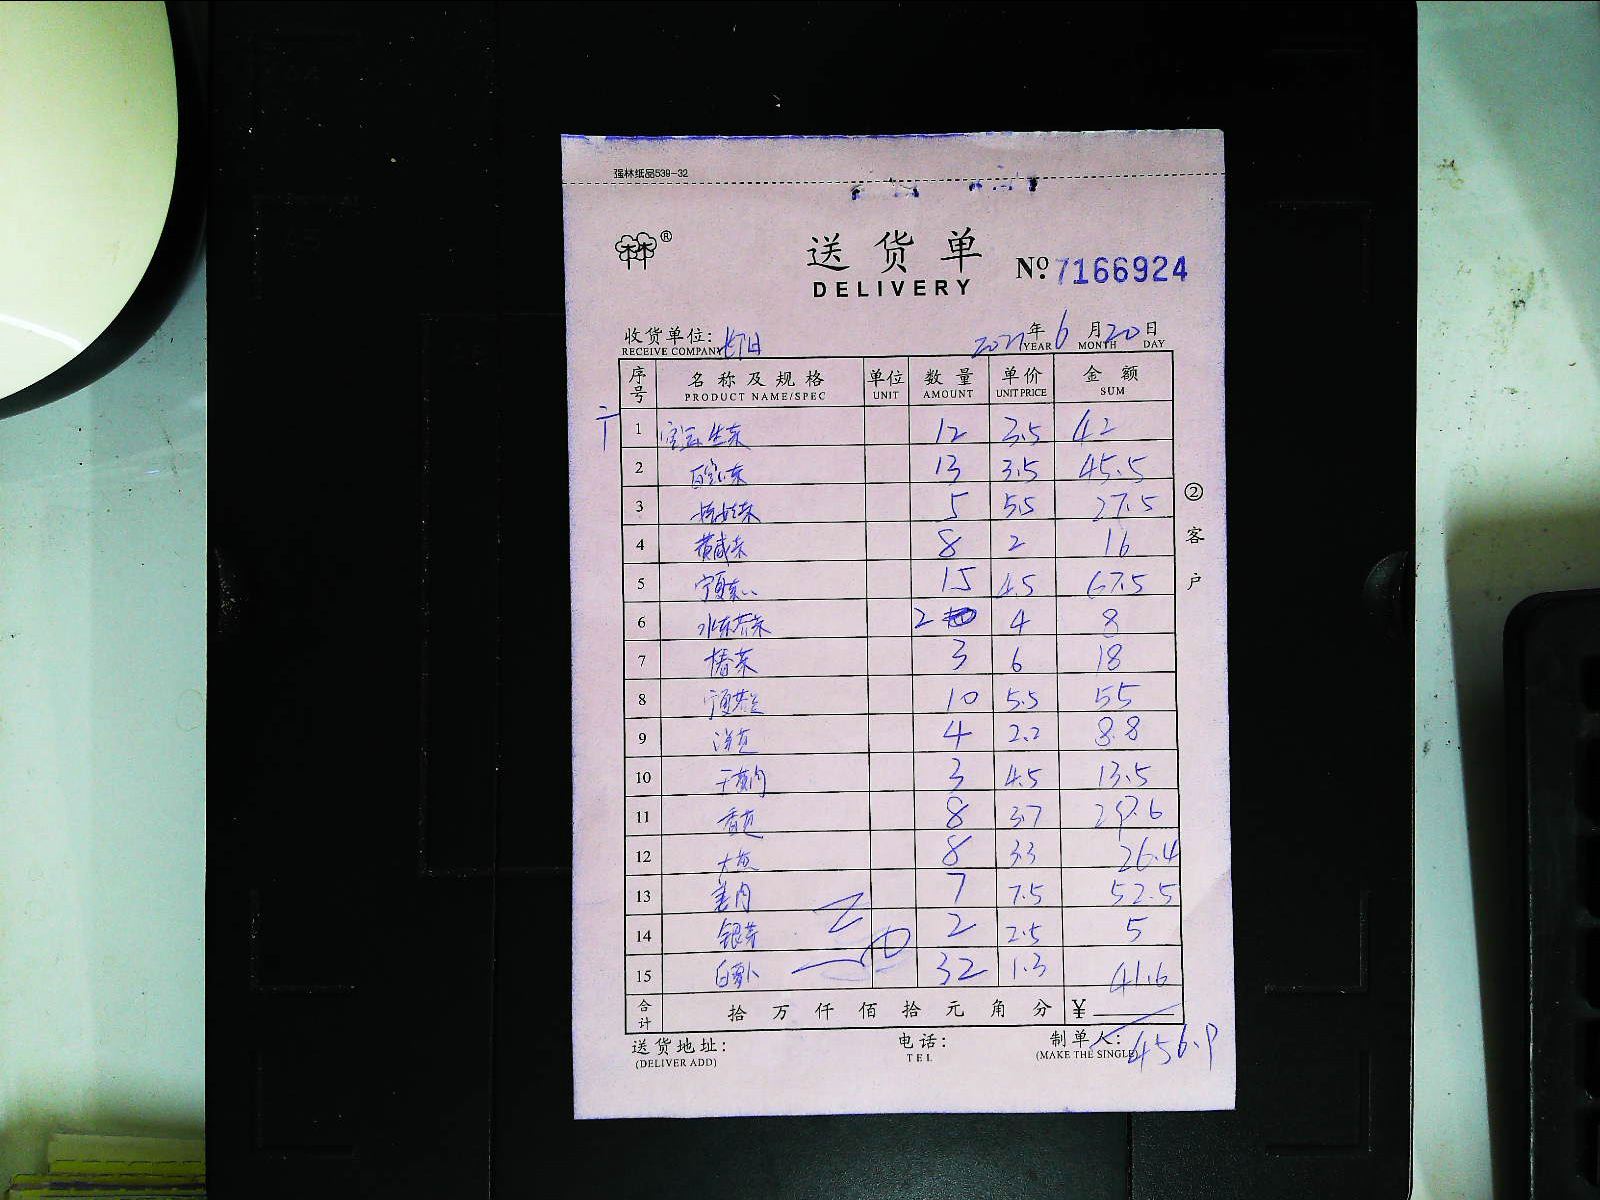 强林纸品539-32
送货单
DELIVERY
№ 7166924
收货单位:
RECEIVE COMPANY
年 6 月 20 日
YEAR MONTH DAY
序号 名称及规格 单位 数量 单价 金额
PRODUCT NAME/SPEC UNIT AMOUNT UNIT PRICE SUM
1 生菜 12 3.5 42
2 13 3.5 45.5
3 5 5.5 27.5
4 8 2 16
5 宁夏菜心 15 4.5 67.5
6 水东芥菜 2 4 8
7 椿菜 3 6 18
8 10 5.5 55
9 洋葱 4 2.2 8.8
10 干葱肉 3 4.5 13.5
11 香葱 8 3.7 29.6
12 大葱 8 3.3 26.4
13 姜肉 7 7.5 52.5
14 银芽 2 2.5 5
15 白萝卜 32 1.3 41.6
合计 拾 万 仟 佰 拾 元 角 分 ¥
456.9
送货地址: 电话: 制单人:
(DELIVER ADD) TEL (MAKE THE SINGLE)
②客户